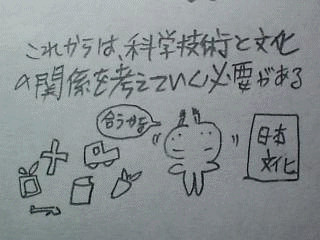 これからは、科学技術と文化
の関係を考えていく必要がある
合うかな
日本
文化